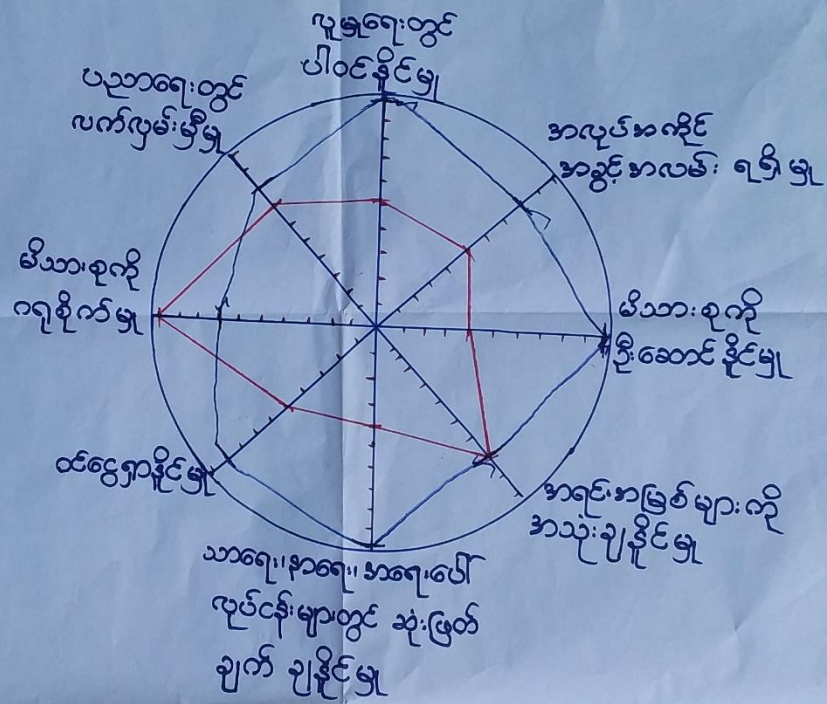 လူမှုရေးတွင်
ပါဝင်နိုင်မှု
အလုပ်အကိုင်
အခွင့်အလမ်း ရရှိမှု
မိသားစုကို
ဦးဆောင်နိုင်မှု
အရင်းအမြစ်များကို
အသုံးချနိုင်မှု
သာရေး၊နာရေး၊အရေးပေါ်
လုပ်ငန်းများတွင် ဆုံးဖြတ်
ချက် ချနိုင်မှု
ဝင်ငွေရှာနိုင်မှု
မိသားစုကို
ဂရုစိုက်မှု
ပညာရေးတွင်
လက်လှမ်းမှီမှု